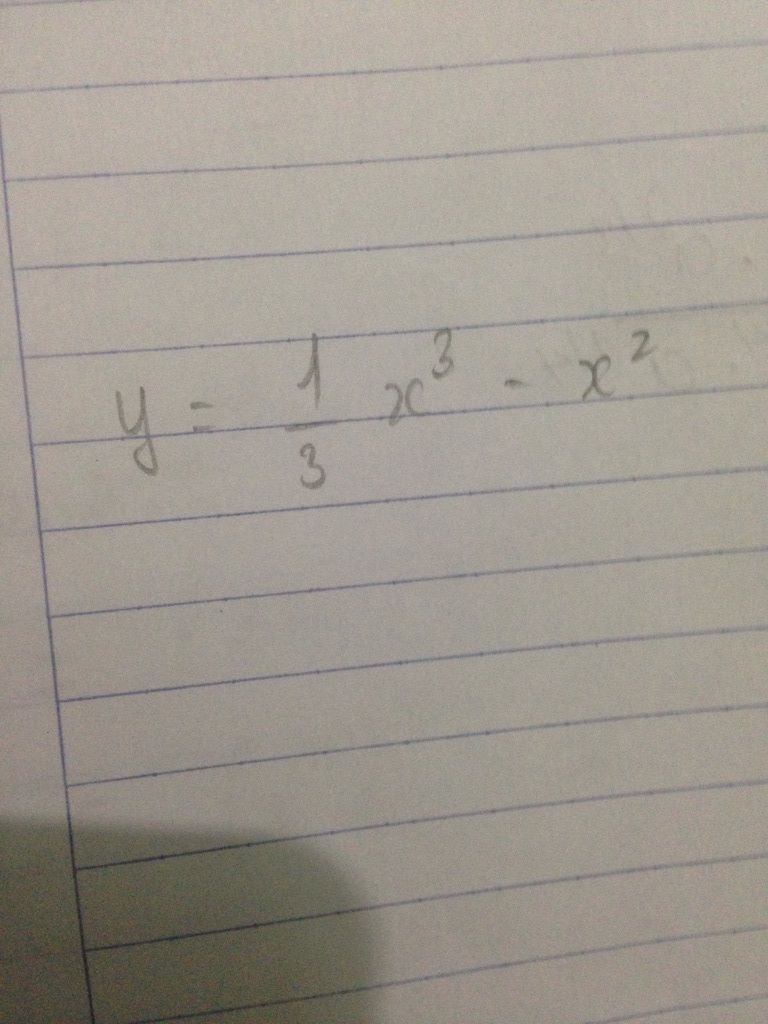 y = 1/3 x³ - x²